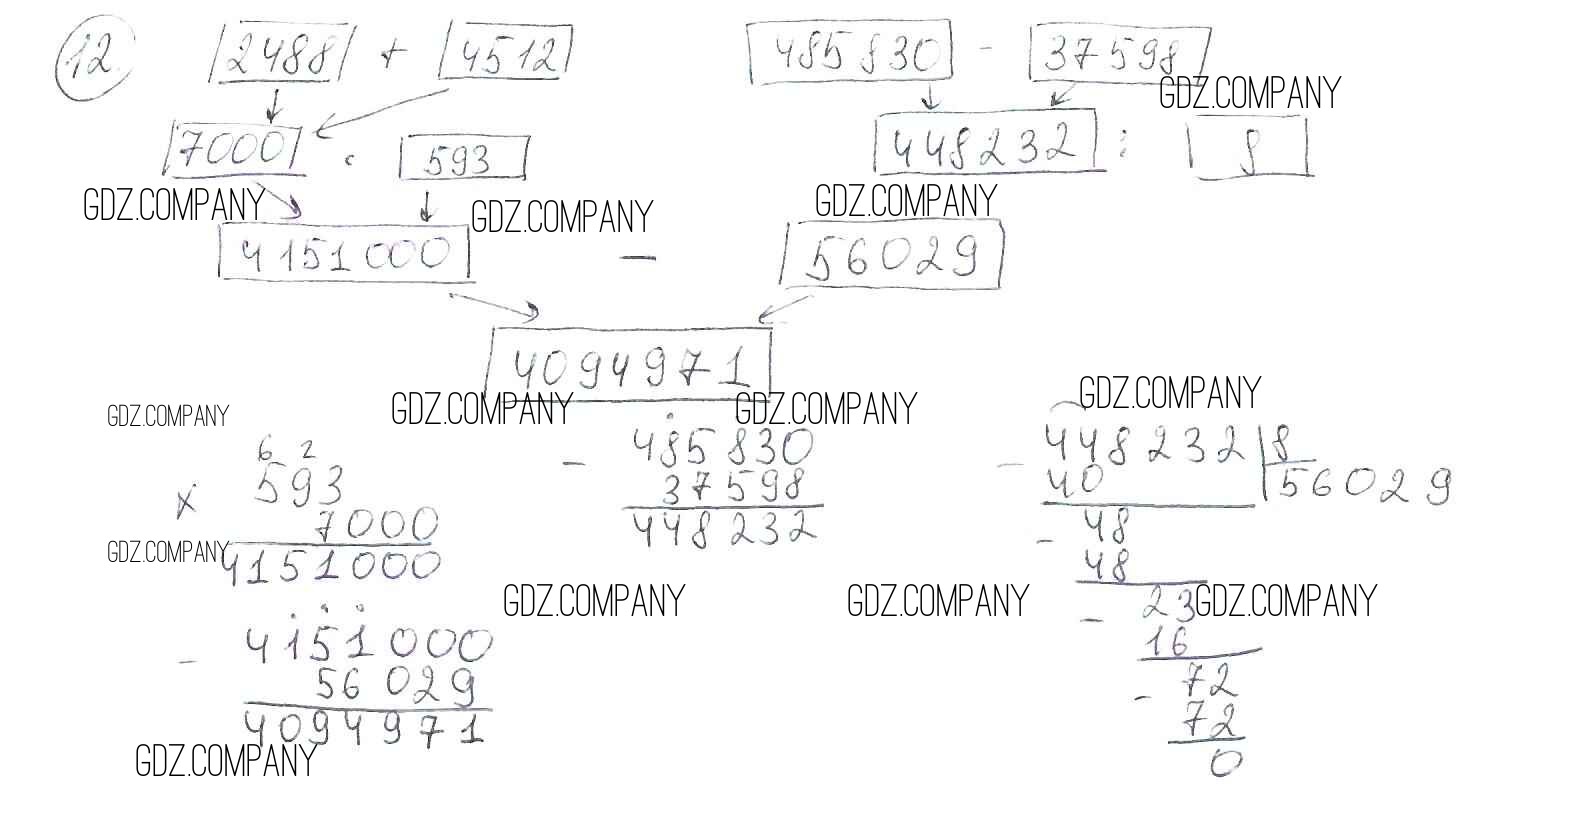 12. 2488 + 4512 485830 - 37598
GDZ.COMPANY
7000 · 593 448232 : 8
GDZ.COMPANY GDZ.COMPANY GDZ.COMPANY
4151000 - 56029
4094971
GDZ.COMPANY GDZ.COMPANY GDZ.COMPANY GDZ.COMPANY
6 2
593
× 7000
4151000
GDZ.COMPANY
485830
- 37598
448232
- 448232 | 8
40 56029
- 48
48
- 23
16
- 72
72
0
GDZ.COMPANY GDZ.COMPANY GDZ.COMPANY
4151000
- 56029
4094971
GDZ.COMPANY